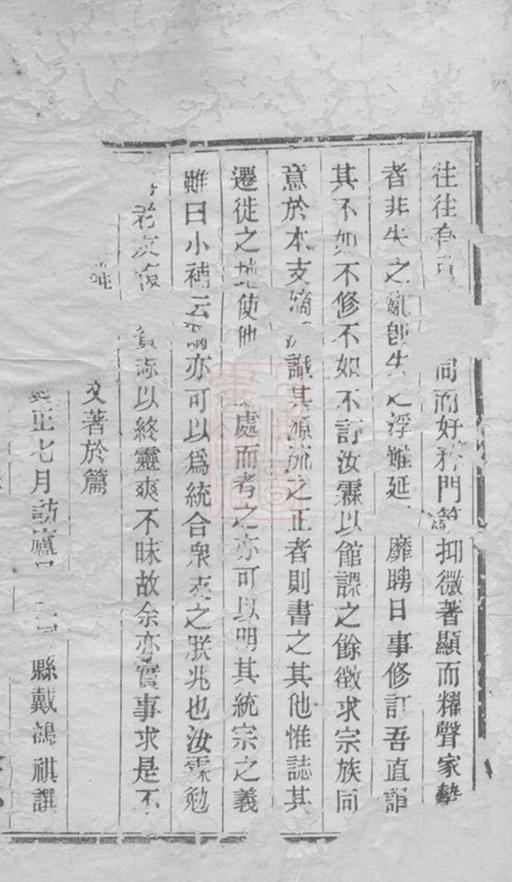 往往有同而好矜門第抑微著顯而糶聲家藝
者非失之亂卽失之浮雖延靡聘日事修訂吾直謂
其不如不修不如不訂汝霖以館課之餘徵求宗族同
意於本支識其源流之正者則書之其他惟誌其
遷徙之地使他處而考之亦可以明其統宗之義
雖曰小補云爾亦可以爲統合衆之朕兆也汝霖勉
以終靈爽不昧故余亦實事求是不
文著於篇
正七月訪縣戴鴻祺譔